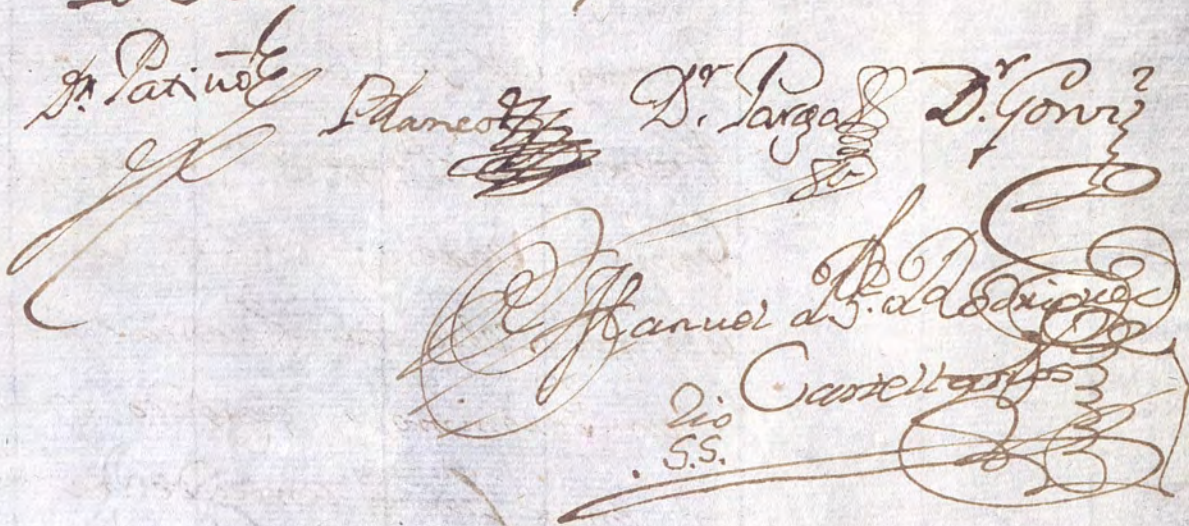 Dr. Patiño Blanco Dr. Parga Dr. Gonz
Manuel Rodriguez
Castell
rio
S.S.